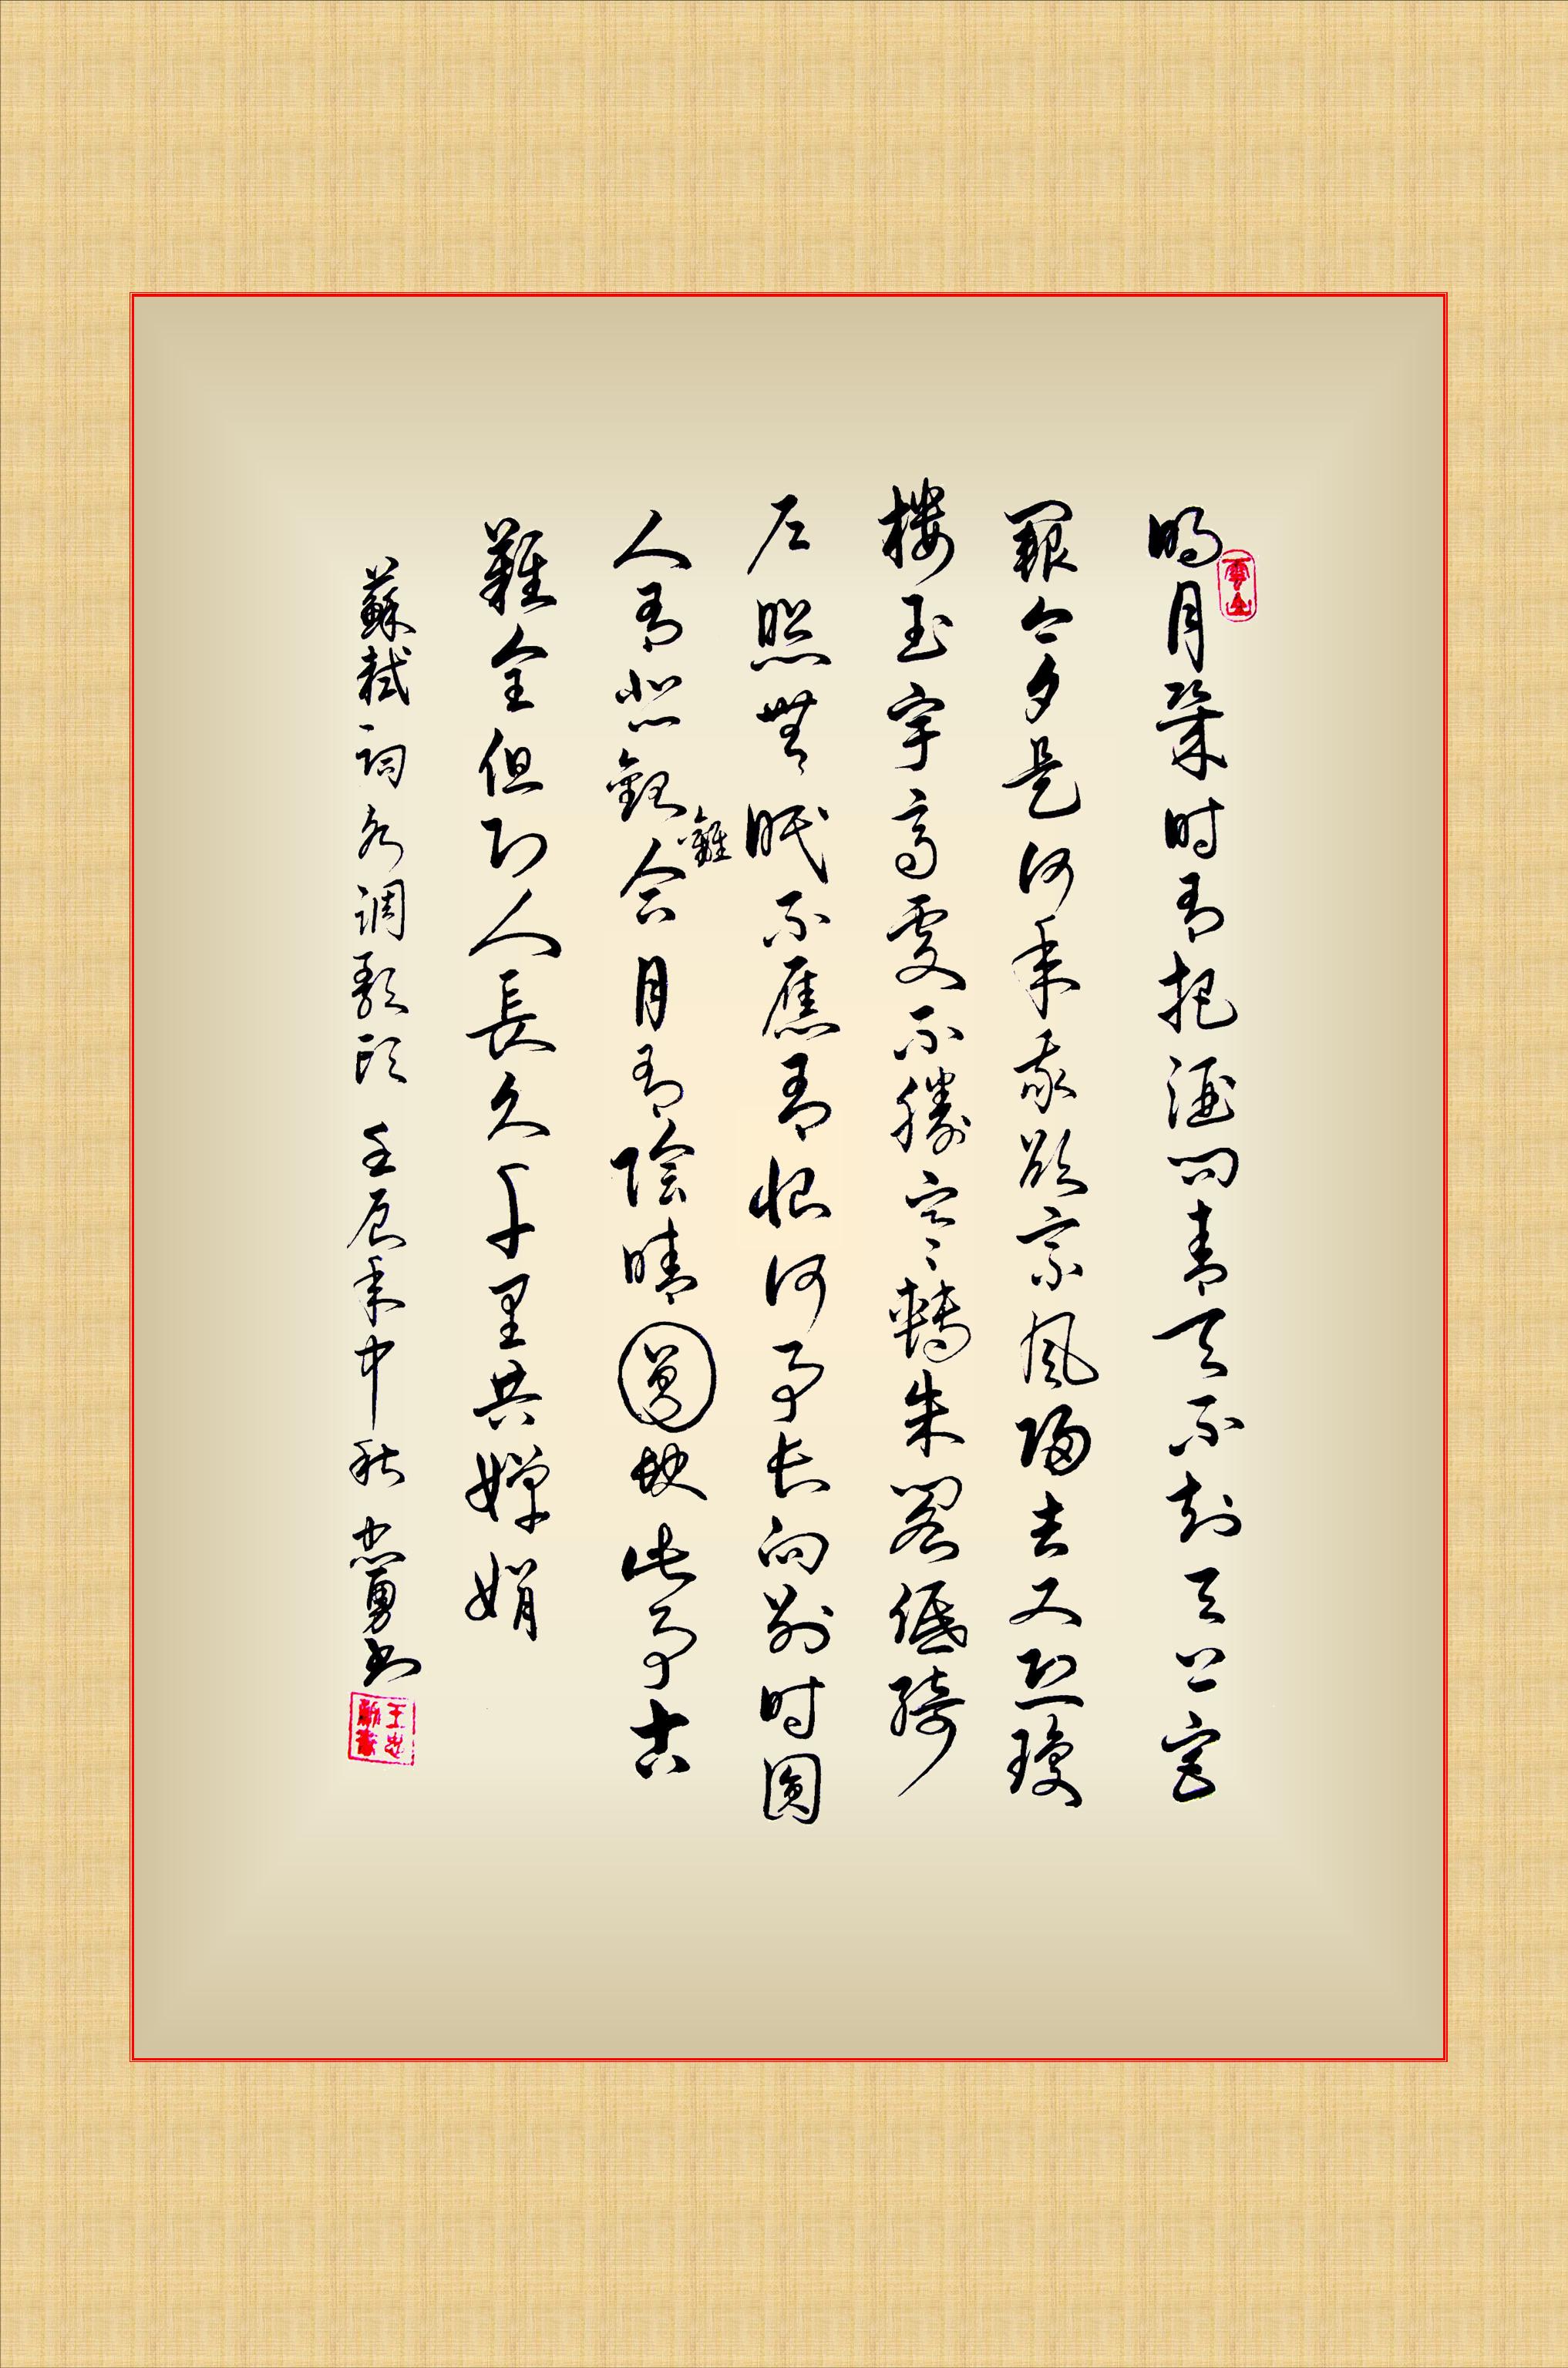 明月幾时有把酒问青天不知天上宫
闕今夕是何年我欲乘風歸去又恐瓊
楼玉宇高處不勝寒轉朱阁低綺
户照無眠不應有恨何事长向别时圆
人有悲歡離合月有陰晴圓缺此事古
難全但願人長久千里共嬋娟
蘇軾词水调歌头 壬辰年中秋 忠勇书